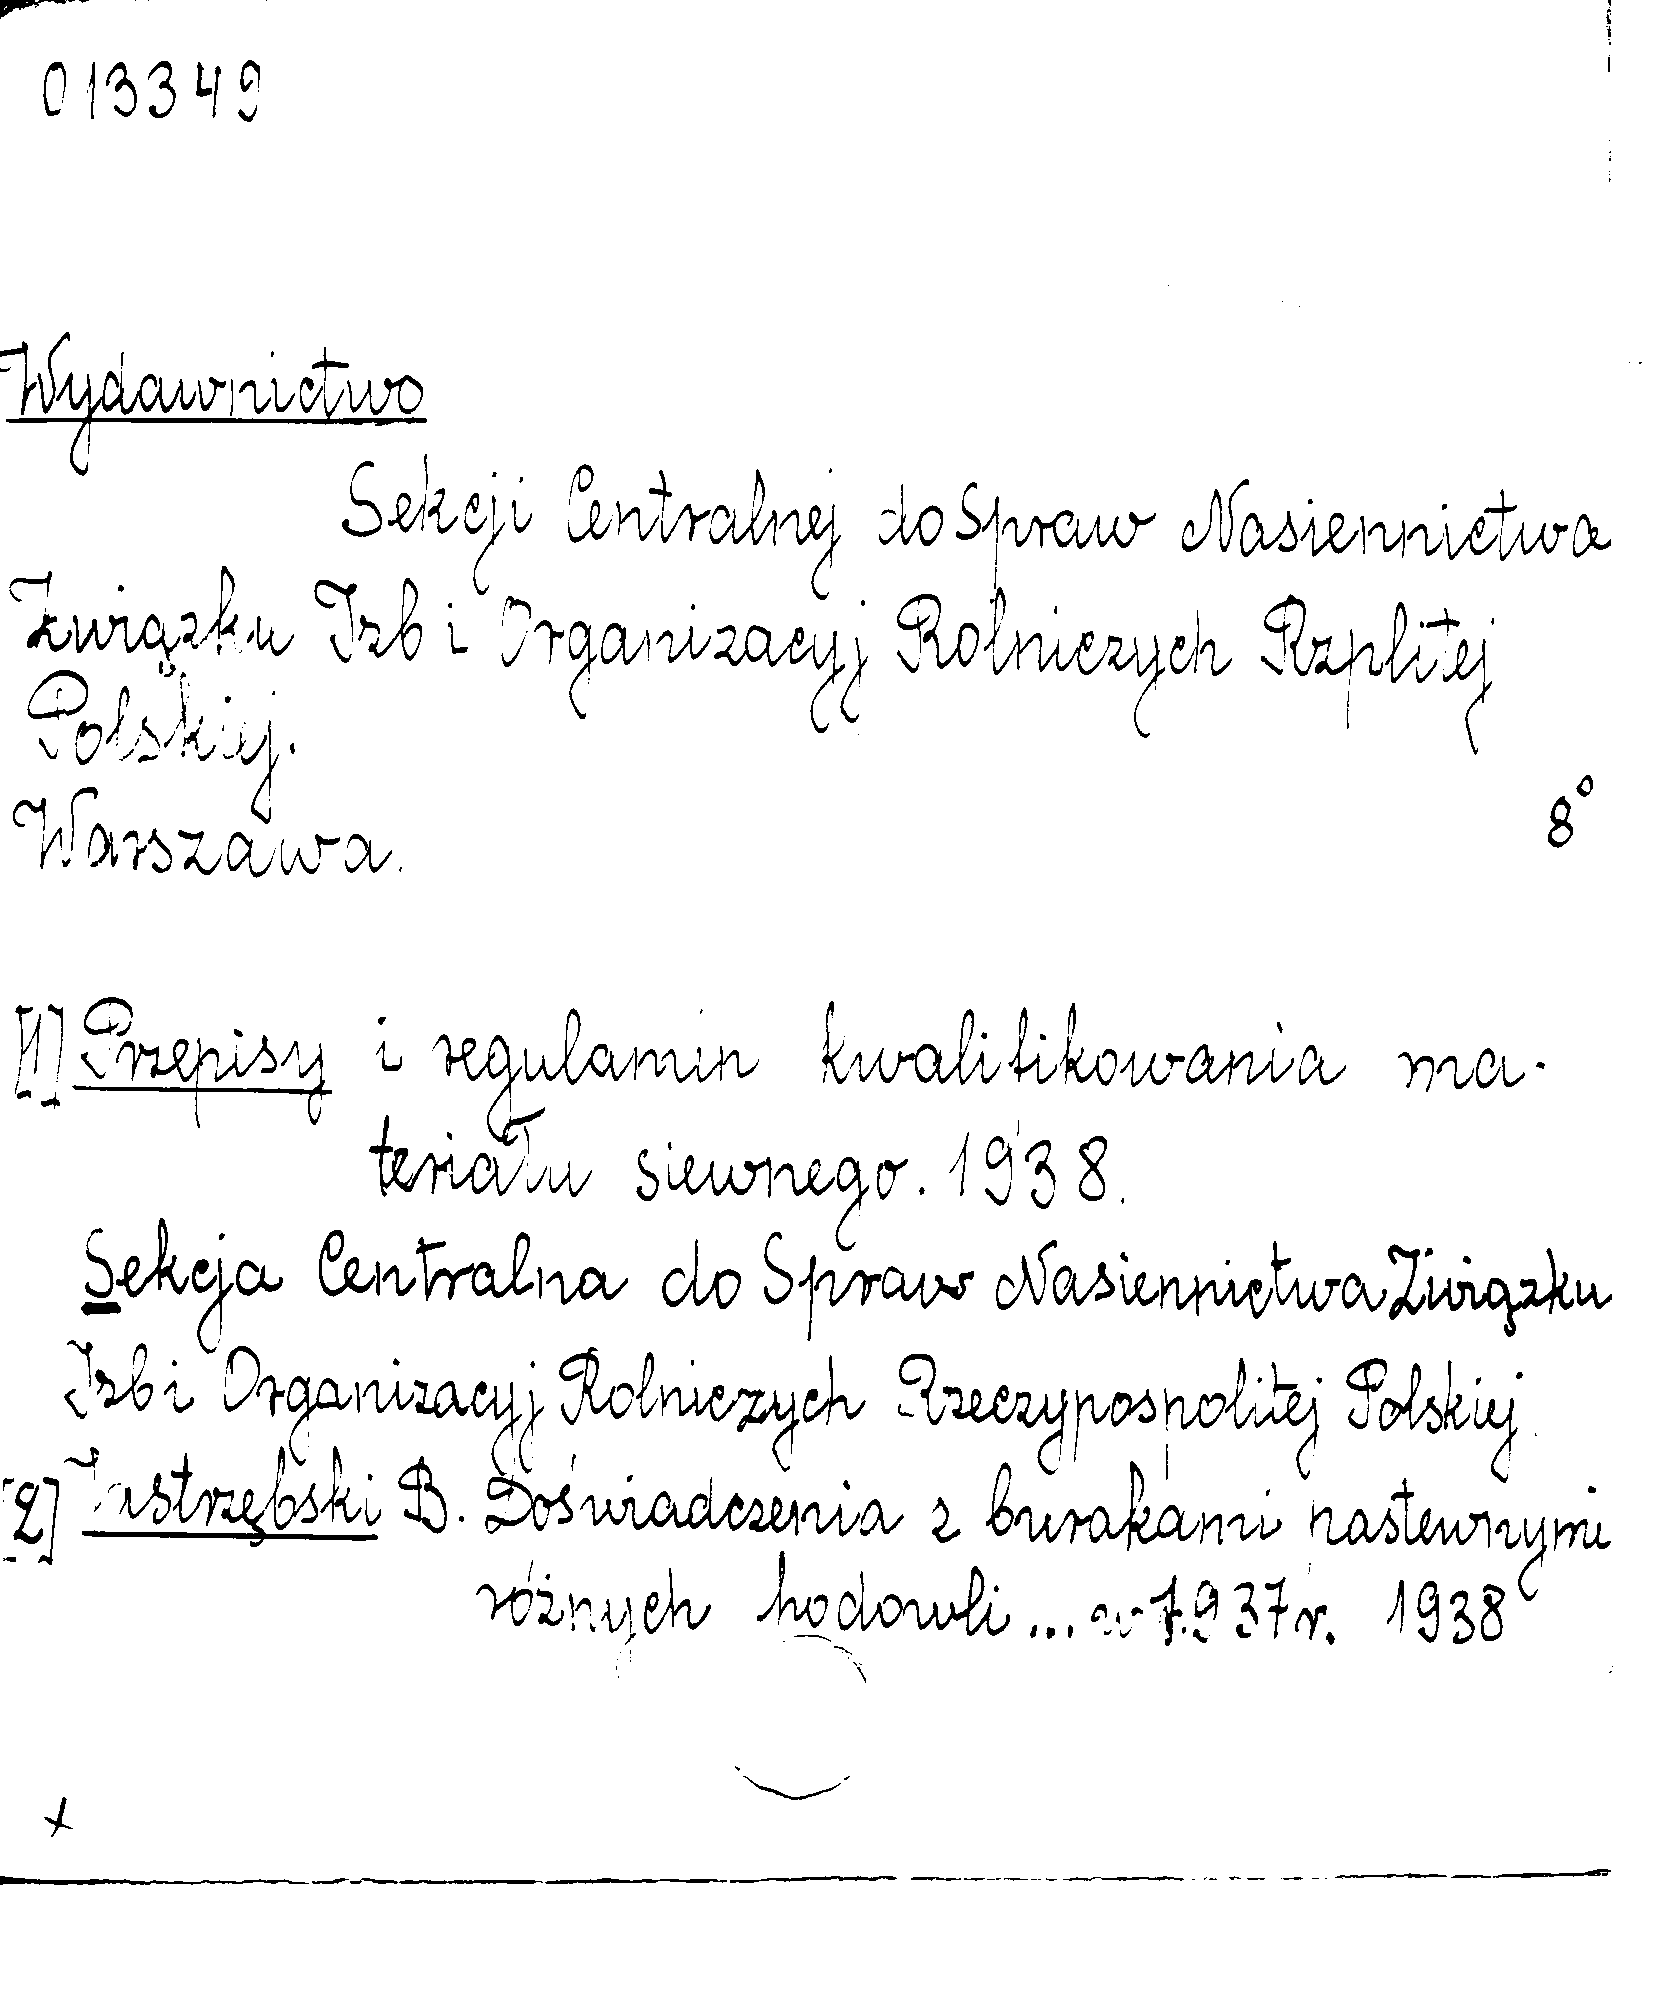 013349
Wydawnictwo
Sekcji Centralnej do Spraw Nasiennictwa
Związku Izb i Organizacyj Rolniczych Rzplitej
Polskiej.
Warszawa.
8°
[1] Przepisy i regulamin kwalifikowania ma-
teriału siewnego. 1938.
Sekcja Centralna do Spraw Nasiennictwa Związku
Izb i Organizacyj Rolniczych Rzeczypospolitej Polskiej.
[2] Jastrzębski B. Doświadczenia z burakami pastewnymi
różnych hodowli... w 1937 r. 1938
x